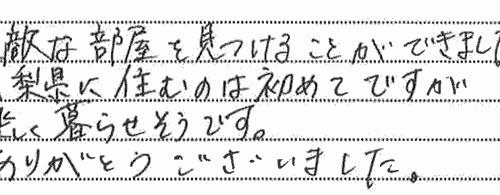 敵な部屋を見つけることができました
梨県に住むのは初めてですが
しく暮らせそうです。
ありがとうございました。